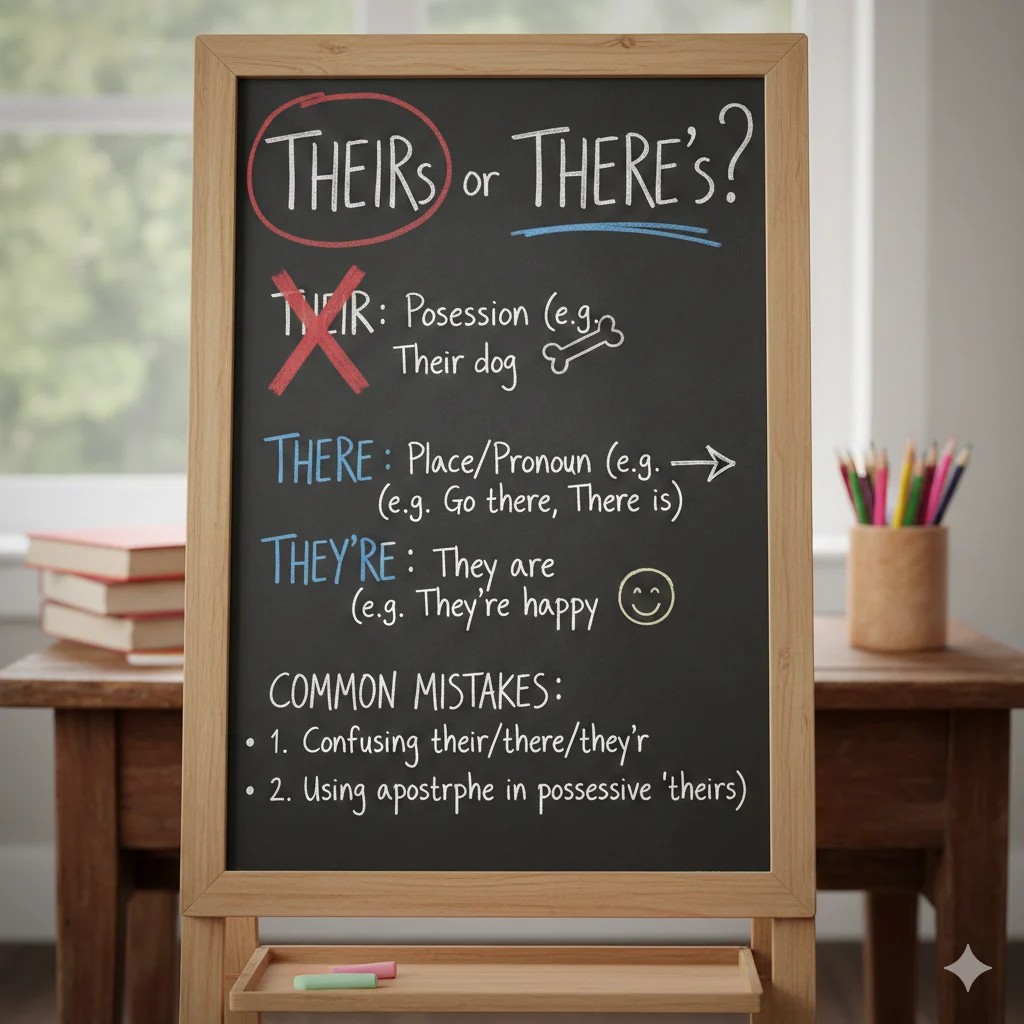 THEIRs or THERE's?
THEIR: Posession (e.g.
Their dog
THERE: Place/Pronoun (e.g. →
(e.g. Go there, There is)
THEY'RE: They are
(e.g. They're happy
COMMON MISTAKES:
• 1. Confusing their/there/they'r
• 2. Using apostrphe in possessive 'theirs)